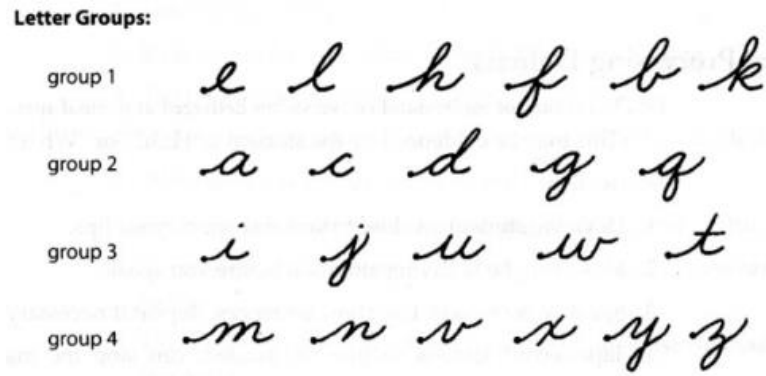 Letter Groups:
group 1 e l h f b k
group 2 a c d g q
group 3 i j u w t
group 4 m n v x y z